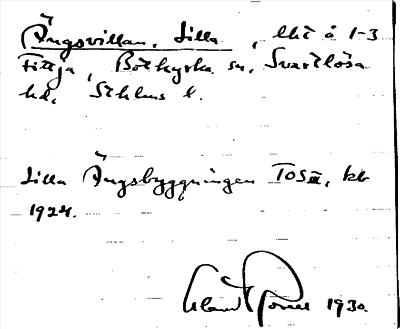 Ängsvillan, Lilla, lht å 1-3
Fittja, Botkyrka sn, Svartlösa
hd, Sthlms l.
Lilla Ängsbyggningen TOS III, kb
1924.
1930